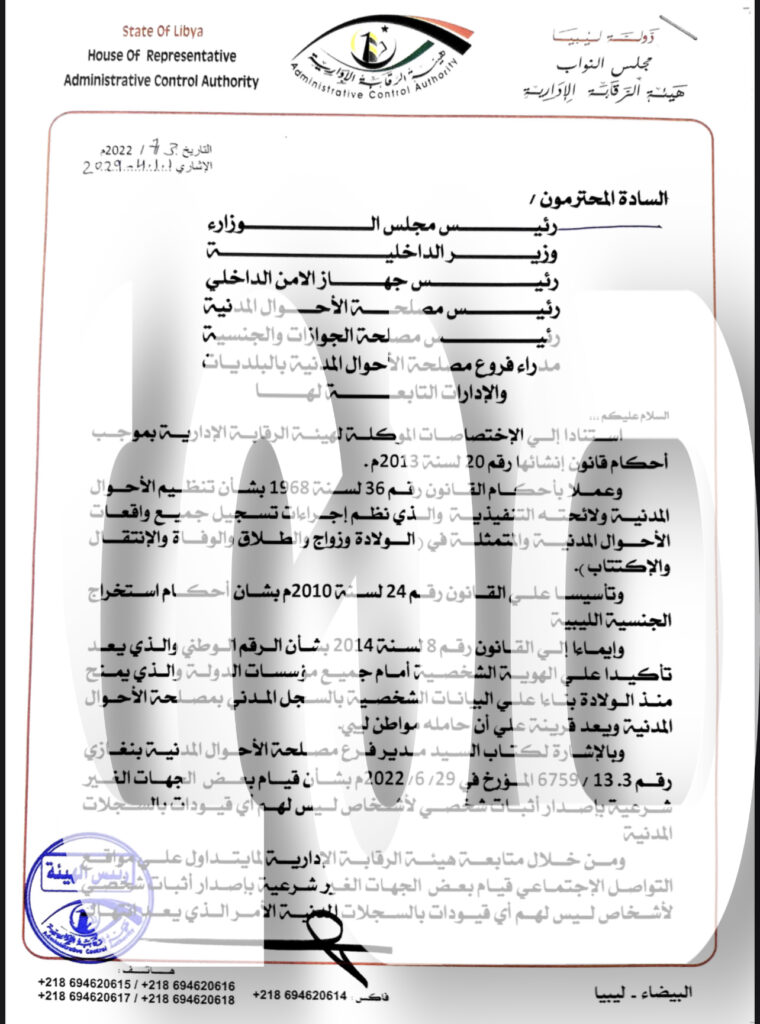 State Of Libya
House Of Representative
Administrative Control Authority
هيئة الرقابة الإدارية
Administrative Control Authority
دولة ليبيا
مجلس النواب
هيئة الرقابة الإدارية
التاريخ / 7 / 2022م
الإشاري
السادة المحترمون /
رئيـس مجلس الـوزراء
وزيـر الداخليـة
رئيـس جهـاز الامن الداخلي
رئيـس مصلحـة الأحـوال المدنية
رئيـس مصلحة الجوازات والجنسية
مدراء فروع مصلحة الأحوال المدنية بالبلديات
والإدارات التابعـة لهـا
السلام عليكم ...
استنادا إلي الإختصاصات الموكلة لهيئة الرقابة الإدارية بموجب
أحكام قانون إنشائها رقم 20 لسنة 2013م.
وعملا بأحكام القانون رقم 36 لسنة 1968 بشأن تنظيم الأحوال
المدنية ولائحته التنفيذية والذي نظم إجراءات تسجيل جميع واقعات
الأحوال المدنية والمتمثلة في (الولادة وزواج والطلاق والوفاة والإنتقال
والإكتتاب).
وتأسيسا علي القانون رقم 24 لسنة 2010م بشان أحكام استخراج
الجنسية الليبية
وإيماءا إلي القانون رقم 8 لسنة 2014 بشأن الرقم الوطني والذي يعد
تأكيدا علي الهوية الشخصية أمام جميع مؤسسات الدولة والذي يمنح
منذ الولادة بناءا علي البيانات الشخصية بالسجل المدني بمصلحة الأحوال
المدنية ويعد قرينة علي أن حامله مواطن ليبي.
وبالإشارة لكتاب السيد مدير فرع مصلحة الأحوال المدنية بنغازي
رقم 13.3 / 6759 المؤرخ في 29/ 6/ 2022م بشأن قيام بعض الجهات الغير
شرعية بإصدار أثبات شخصي لأشخاص ليس لهم أي قيودات بالسجلات
المدنية
ومن خلال متابعة هيئة الرقابة الإدارية لمايتداول علي مواقع
التواصل الإجتماعي قيام بعض الجهات الغير شرعية بإصدار أثبات شخصي
لأشخاص ليس لهم أي قيودات بالسجلات المدنية الأمر الذي يعد
رئيس الهيئة
Administrative Control
هـاتـف :
+218 694620615 / +218 694620616
+218 694620617 / +218 694620618
فاكس : +218 694620614
البيضاء - ليبيا